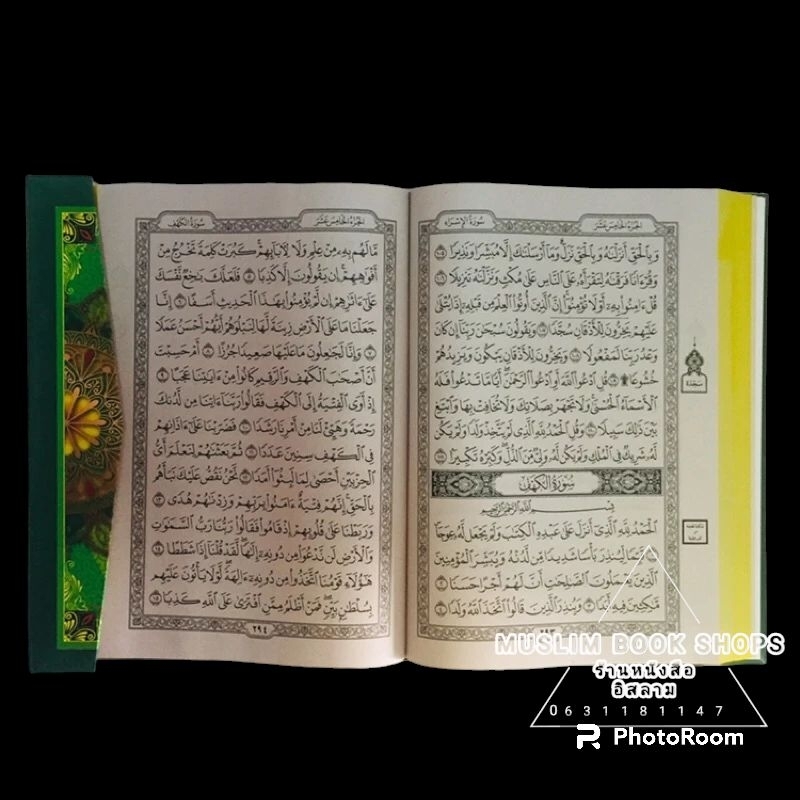 الجزء الخامس عشر
سورة الإسراء
وَبِٱلْحَقِّ أَنزَلْنَٰهُ وَبِٱلْحَقِّ نَزَلَ وَمَآ أَرْسَلْنَٰكَ إِلَّا مُبَشِّرًا وَنَذِيرًا ١٠٥
وَقُرْءَانًا فَرَقْنَٰهُ لِتَقْرَأَهُۥ عَلَى ٱلنَّاسِ عَلَىٰ مُكْثٍ وَنَزَّلْنَٰهُ تَنزِيلًا ١٠٦
قُلْ ءَامِنُوا۟ بِهِۦٓ أَوْ لَا تُؤْمِنُوٓا۟ إِنَّ ٱلَّذِينَ أُوتُوا۟ ٱلْعِلْمَ مِن قَبْلِهِۦٓ إِذَا يُتْلَىٰ
عَلَيْهِمْ يَخِرُّونَ لِلْأَذْقَانِ سُجَّدًا ١٠٧ وَيَقُولُونَ سُبْحَٰنَ رَبِّنَآ إِن كَانَ
وَعْدُ رَبِّنَا لَمَفْعُولًا ١٠٨ وَيَخِرُّونَ لِلْأَذْقَانِ يَبْكُونَ وَيَزِيدُهُمْ
خُشُوعًا ۩ ١٠٩ قُلِ ٱدْعُوا۟ ٱللَّهَ أَوِ ٱدْعُوا۟ ٱلرَّحْمَٰنَ أَيًّا مَّا تَدْعُوا۟ فَلَهُ
ٱلْأَسْمَآءُ ٱلْحُسْنَىٰ وَلَا تَجْهَرْ بِصَلَاتِكَ وَلَا تُخَافِتْ بِهَا وَٱبْتَغِ
بَيْنَ ذَٰلِكَ سَبِيلًا ١١٠ وَقُلِ ٱلْحَمْدُ لِلَّهِ ٱلَّذِى لَمْ يَتَّخِذْ وَلَدًا وَلَمْ يَكُن
لَّهُۥ شَرِيكٌ فِى ٱلْمُلْكِ وَلَمْ يَكُن لَّهُۥ وَلِىٌّ مِّنَ ٱلذُّلِّ وَكَبِّرْهُ تَكْبِيرًۢا ١١١
سورة الكهف
بِسْمِ ٱللَّهِ ٱلرَّحْمَٰنِ ٱلرَّحِيمِ
ٱلْحَمْدُ لِلَّهِ ٱلَّذِىٓ أَنزَلَ عَلَىٰ عَبْدِهِ ٱلْكِتَٰبَ وَلَمْ يَجْعَل لَّهُۥ عِوَجَا
١ قَيِّمًا لِّيُنذِرَ بَأْسًا شَدِيدًا مِّن لَّدُنْهُ وَيُبَشِّرَ ٱلْمُؤْمِنِينَ
ٱلَّذِينَ يَعْمَلُونَ ٱلصَّٰلِحَٰتِ أَنَّ لَهُمْ أَجْرًا حَسَنًا ٢
مَّٰكِثِينَ فِيهِ أَبَدًا ٣ وَيُنذِرَ ٱلَّذِينَ قَالُوا۟ ٱتَّخَذَ ٱللَّهُ وَلَدًا ٤
سجدة
الجزء الخامس عشر
سورة الكهف
مَّا لَهُم بِهِۦ مِنْ عِلْمٍ وَلَا لِءَابَآئِهِمْ كَبُرَتْ كَلِمَةً تَخْرُجُ مِنْ
أَفْوَٰهِهِمْ إِن يَقُولُونَ إِلَّا كَذِبًا ٥ فَلَعَلَّكَ بَٰخِعٌ نَّفْسَكَ
عَلَىٰٓ ءَاثَٰرِهِمْ إِن لَّمْ يُؤْمِنُوا۟ بِهَٰذَا ٱلْحَدِيثِ أَسَفًا ٦ إِنَّا
جَعَلْنَا مَا عَلَى ٱلْأَرْضِ زِينَةً لَّهَا لِنَبْلُوَهُمْ أَيُّهُمْ أَحْسَنُ عَمَلًا
٧ وَإِنَّا لَجَٰعِلُونَ مَا عَلَيْهَا صَعِيدًا جُرُزًا ٨ أَمْ حَسِبْتَ
أَنَّ أَصْحَٰبَ ٱلْكَهْفِ وَٱلرَّقِيمِ كَانُوا۟ مِنْ ءَايَٰتِنَا عَجَبًا ٩
إِذْ أَوَى ٱلْفِتْيَةُ إِلَى ٱلْكَهْفِ فَقَالُوا۟ رَبَّنَآ ءَاتِنَا مِن لَّدُنكَ
رَحْمَةً وَهَيِّئْ لَنَا مِنْ أَمْرِنَا رَشَدًا ١٠ فَضَرَبْنَا عَلَىٰٓ ءَاذَانِهِمْ
فِى ٱلْكَهْفِ سِنِينَ عَدَدًا ١١ ثُمَّ بَعَثْنَٰهُمْ لِنَعْلَمَ أَىُّ
ٱلْحِزْبَيْنِ أَحْصَىٰ لِمَا لَبِثُوٓا۟ أَمَدًا ١٢ نَّحْنُ نَقُصُّ عَلَيْكَ نَبَأَهُم
بِٱلْحَقِّ إِنَّهُمْ فِتْيَةٌ ءَامَنُوا۟ بِرَبِّهِمْ وَزِدْنَٰهُمْ هُدًى ١٣
وَرَبَطْنَا عَلَىٰ قُلُوبِهِمْ إِذْ قَامُوا۟ فَقَالُوا۟ رَبُّنَا رَبُّ ٱلسَّمَٰوَٰتِ
وَٱلْأَرْضِ لَن نَّدْعُوَا۟ مِن دُونِهِۦٓ إِلَٰهًا لَّقَدْ قُلْنَآ إِذًا شَطَطًا ١٤
هَٰٓؤُلَآءِ قَوْمُنَا ٱتَّخَذُوا۟ مِن دُونِهِۦٓ ءَالِهَةً لَّوْلَا يَأْتُونَ عَلَيْهِم
بِسُلْطَٰنٍۭ بَيِّنٍ فَمَنْ أَظْلَمُ مِمَّنِ ٱفْتَرَىٰ عَلَى ٱللَّهِ كَذِبًا ١٥
٢٩٤
MUSLIM BOOK SHOPS
ร้านหนังสือ
อิสลาม
0631181147
PhotoRoom